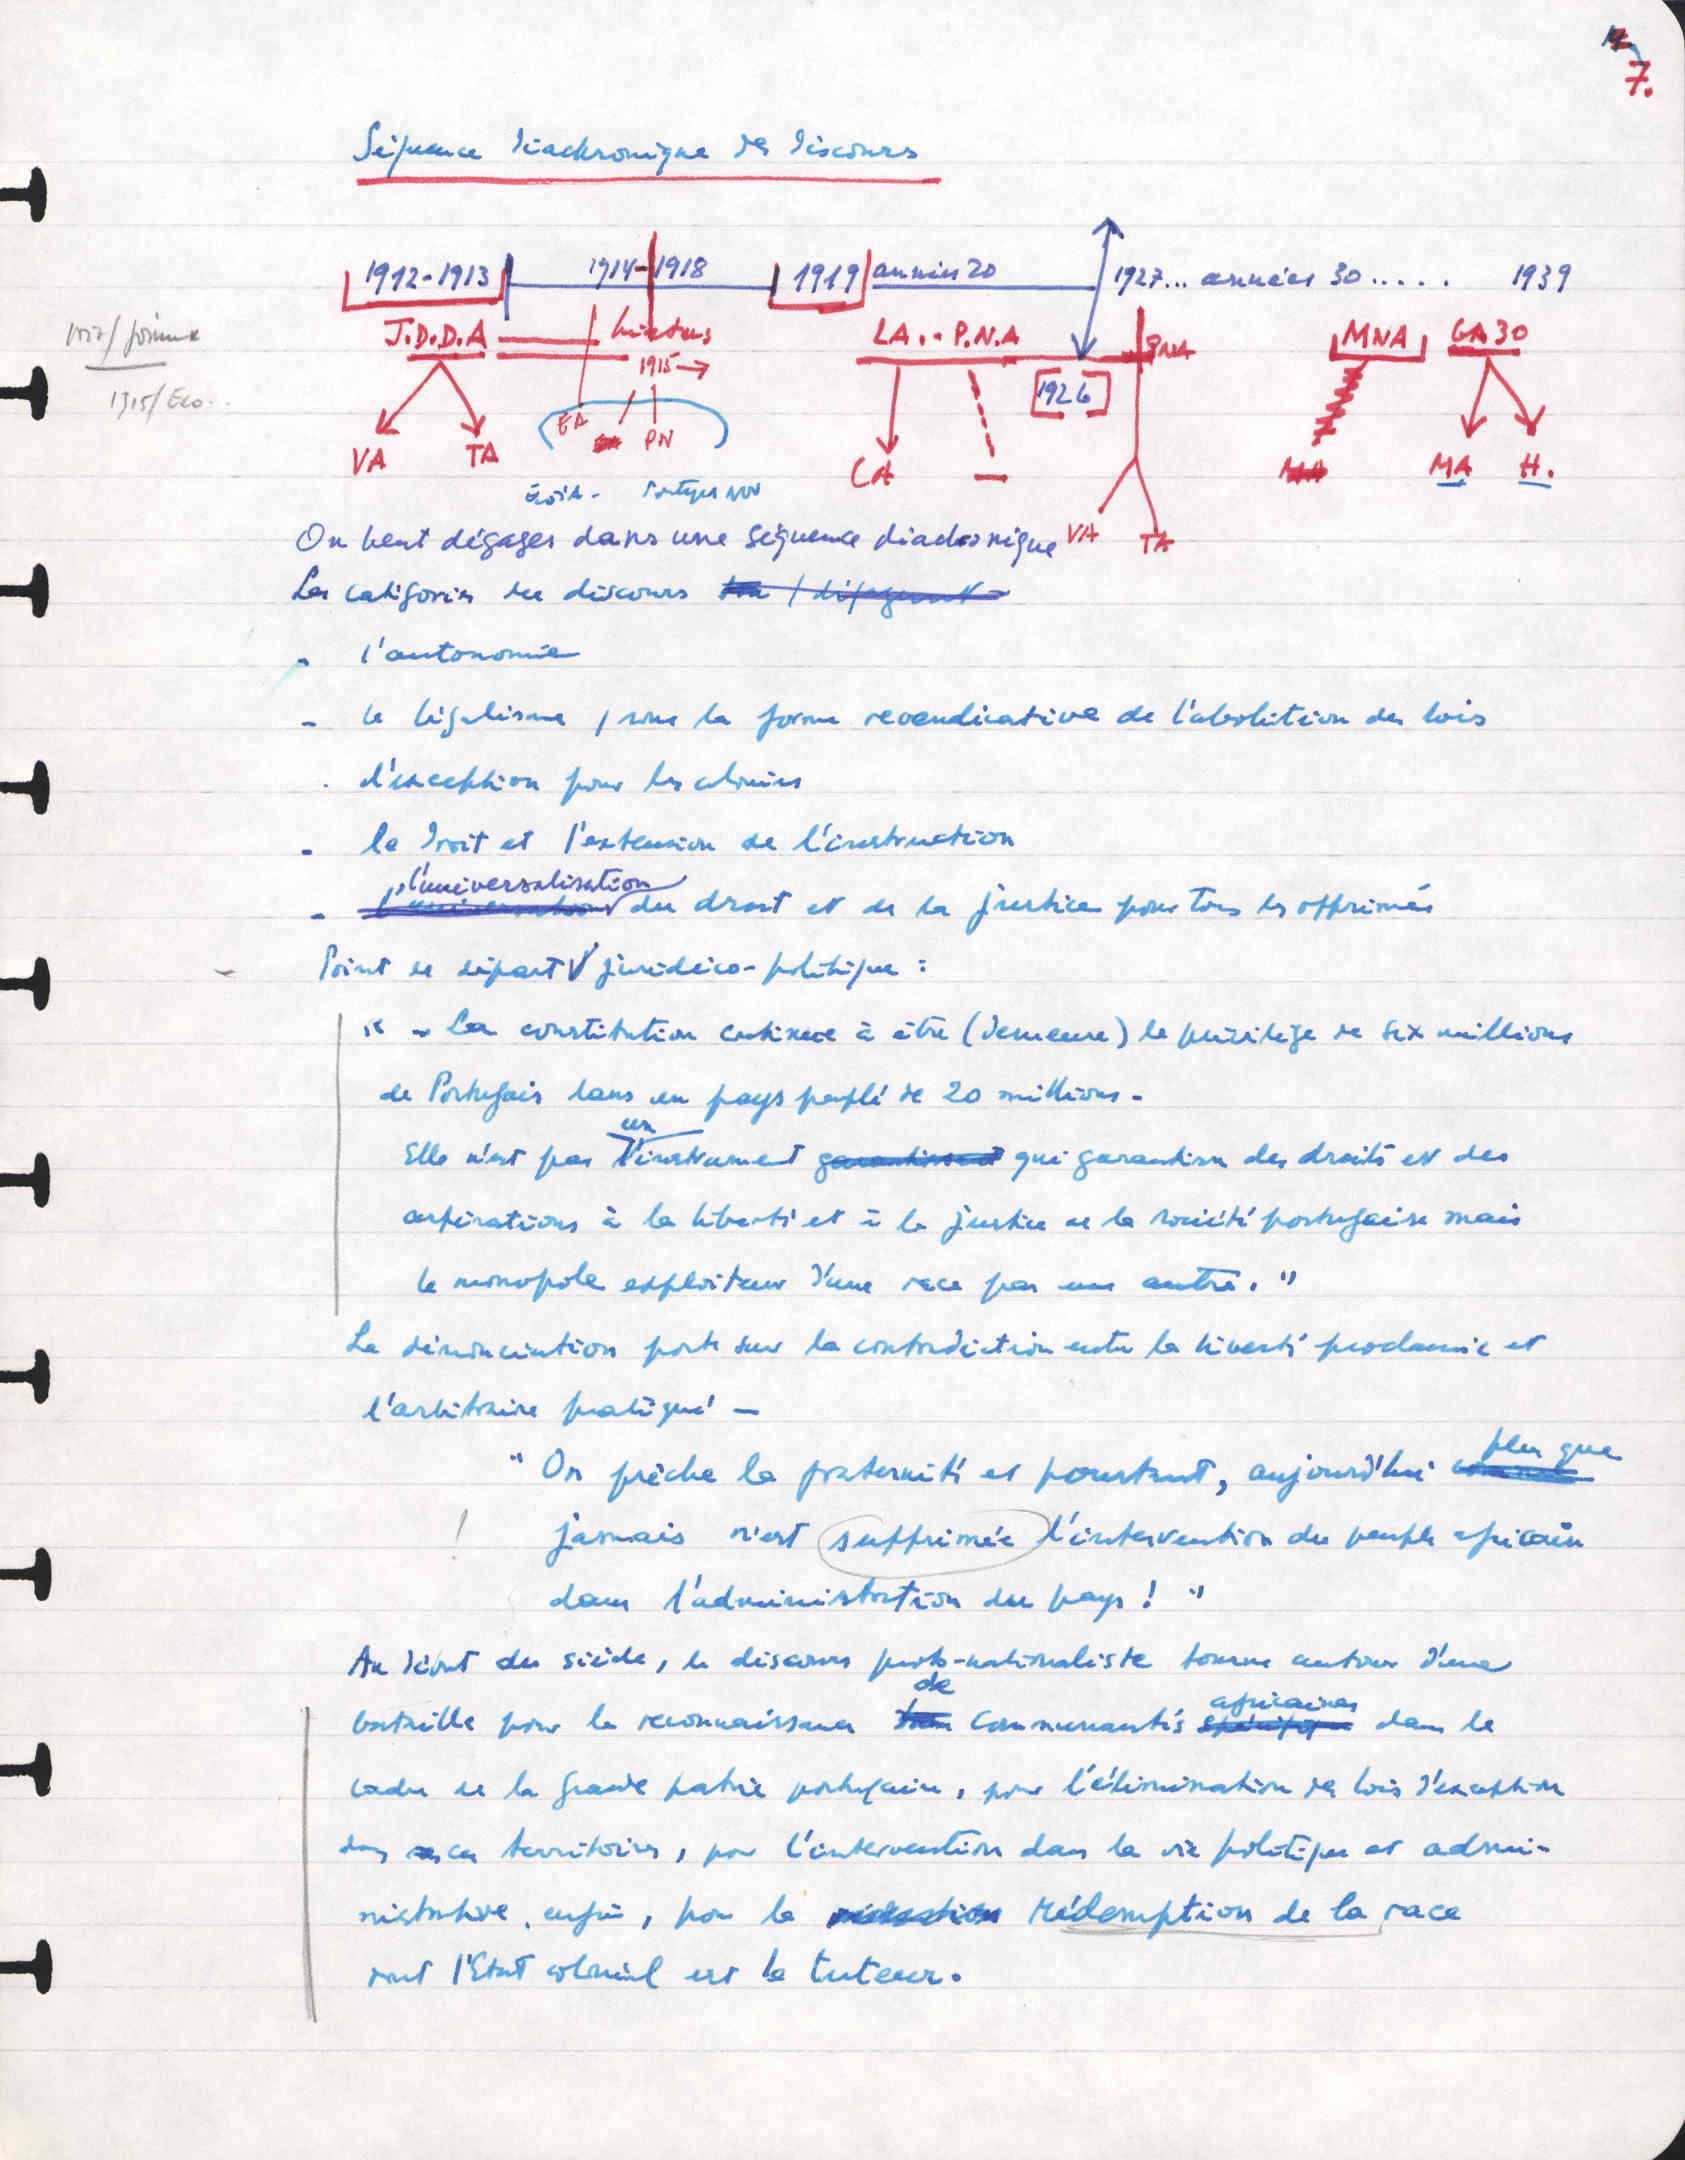 7.
Séquence diachronique des discours
1912-1913 1914-1918 1919 années 20 1927... années 30..... 1939
J.D.D.A LA.. P.N.A PNA MNA GA30
1915→
[1926]
EA PN
VA TA CA MA H.
VA TA
On peut dégager dans une séquence diachronique
Les catégories du discours
- l'autonomie
- le légalisme / sous la forme revendicative de l'abolition des lois
d'exception pour les colonies
- le droit et l'extension de l'instruction
l'universalisation
- du droit et de la justice pour tous les opprimés
Point de départ juridico-politique :
" - La constitution continue à être (demeure) le privilège de six millions
de Portugais dans un pays peuplé de 20 millions -
un
Elle n'est pas l'instrument garantissant qui garantisse des droits et des
aspirations à la liberté et à la justice de la société portugaise mais
le monopole exploiteur d'une race par une autre. "
La dénonciation porte sur la contradiction entre la liberté proclamée et
l'arbitraire pratiqué -
plus que
" On prêche la fraternité et pourtant, aujourd'hui
jamais n'est supprimée l'intervention du peuple africain
dans l'administration du pays ! "
Au début du siècle, le discours proto-nationaliste tourne autour d'une
de africaines
bataille pour la reconnaissance communautés dans le
cadre de la grande patrie portugaise, pour l'élimination des lois d'exception
dans ces territoires, pour l'intervention dans la vie politique et admi-
nistrative, enfin, pour la rédemption de la race
dont l'Etat colonial est le tuteur.